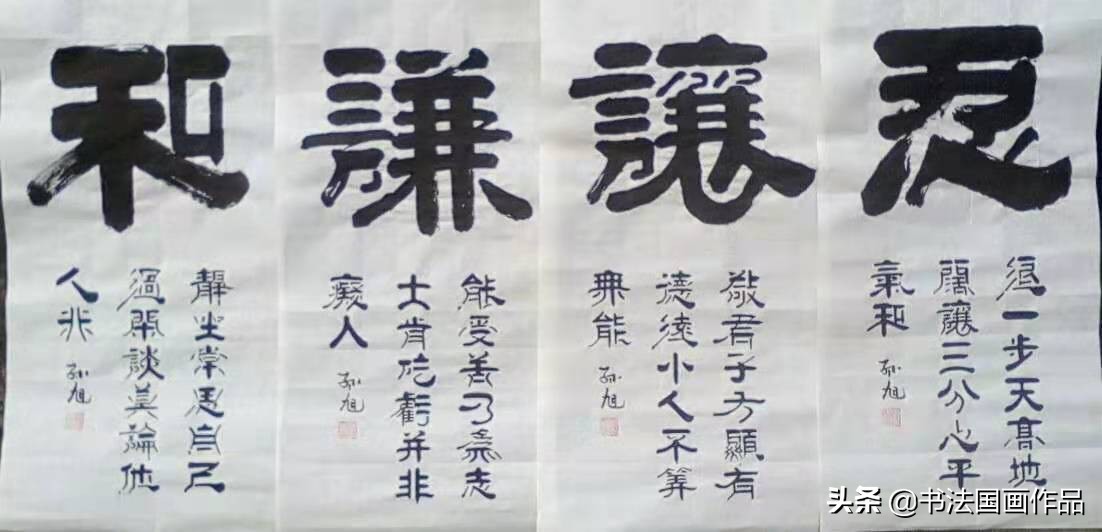 忍
退一步天高地
闊讓三分心平
氣和
孙旭
讓
敬君子方顯有
德遠小人不算
無能
孙旭
謙
能受苦乃為志
士肯吃虧并非
癡人
孙旭
和
靜坐常思自己
過閑談莫論他
人非
孙旭
头条 @书法国画作品